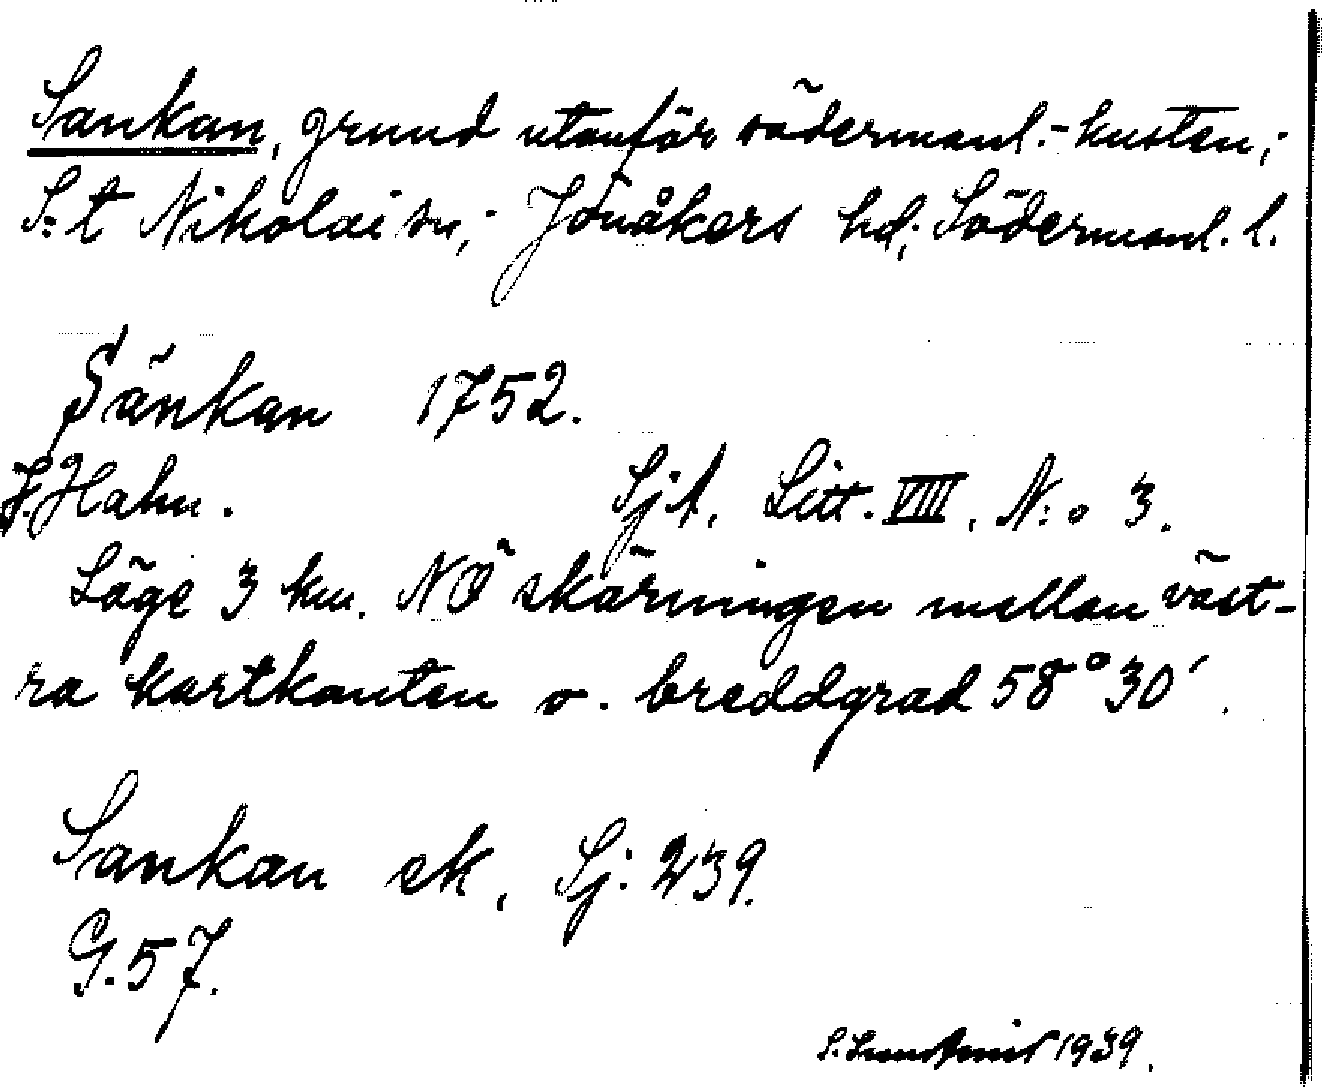 Sankan, grund utanför södermanl.-kusten;
S:t Nikolai sn; Jönåkers hd; Södermanl. l.
Sänkan 1752.
F. Hahn. Sjt. Litt. VIII. N:o 3.
Läge 3 km. NÖ skärningen mellan väst-
ra kartkanten o. breddgrad 58° 30'.
Sankan sk, Sj: 239.
G. 57.
1939.